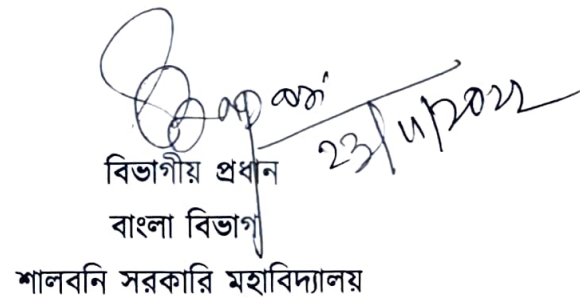 23/11/2022
বিভাগীয় প্রধান
বাংলা বিভাগ
শালবনি সরকারি মহাবিদ্যালয়